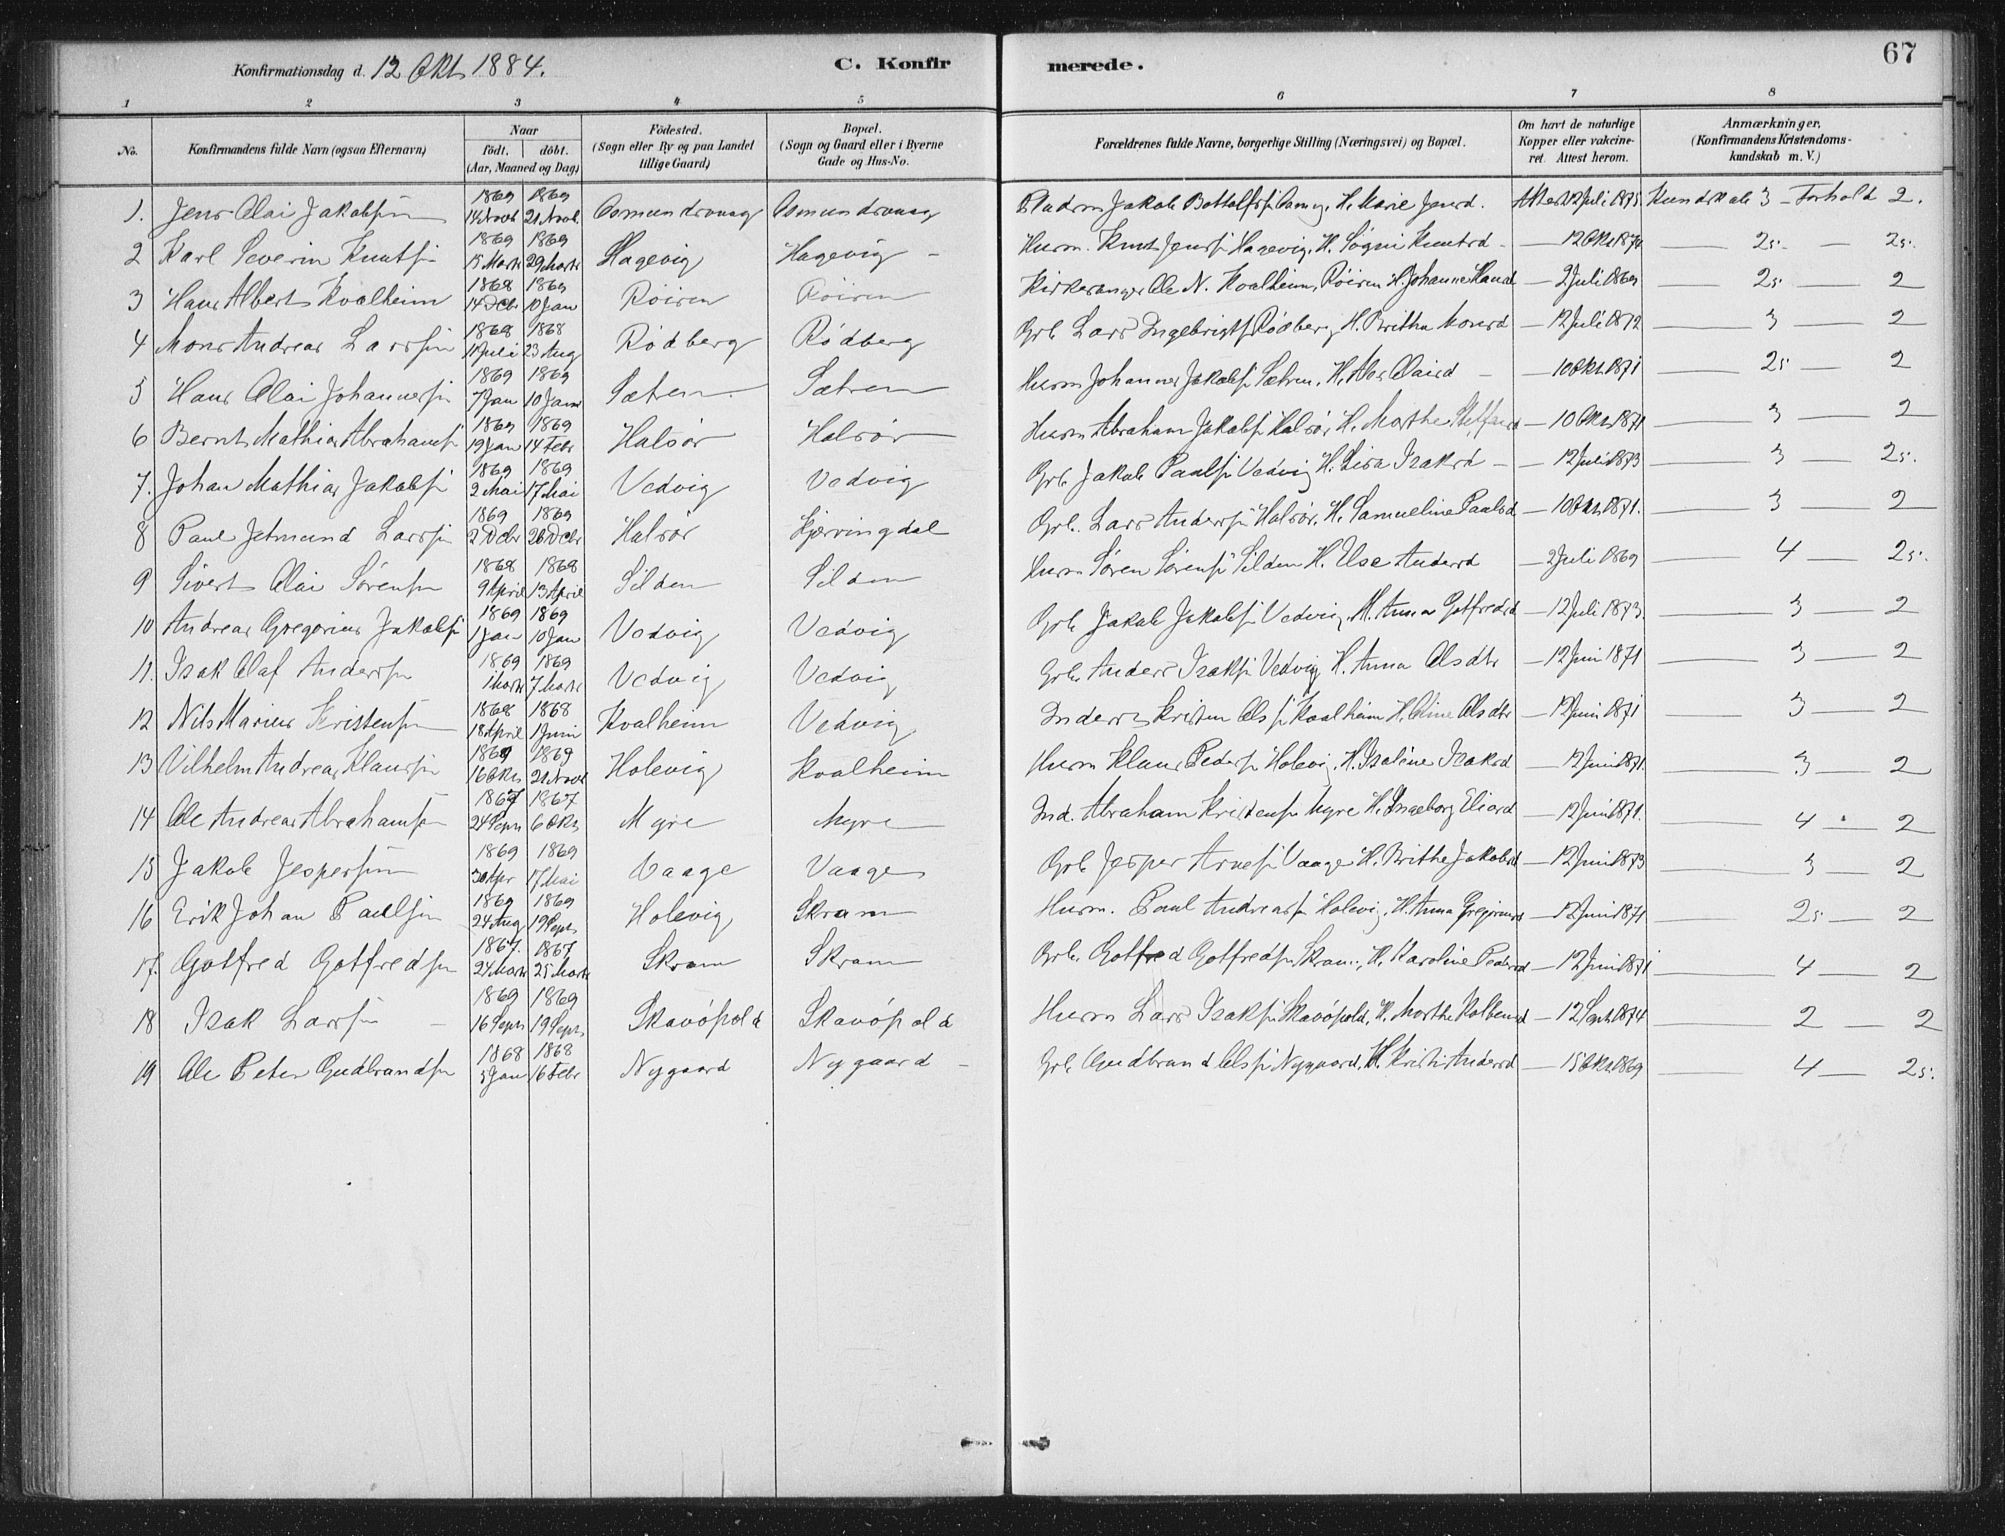 Konfirmationsdag d. 12 Okt 1884. C. Konfirmerede. 67
1 2 3 4 5 6 7 8
No. Konfirmandens fulde Navn (ogsaa Efternavn) Naar født. døbt. (Aar, Maaned og Dag) Fødested. (Sogn eller By og paa Landet tillige Gaard) Bopæl. (Sogn og Gaard eller i Byerne Gade og Hus-No. Forældrenes fulde Navne, borgerlige Stilling (Næringsvei) og Bopæl. Om havt de naturlige Kopper eller vakcineret. Attest herom. Anmærkninger. (Konfirmandens Kristendomskundskab m. V.)
1. Jens Olai Jakobsen 1869 14 Novb 1869 21 Novb. Osmundsvaag Osmundsvaag Jakob Bottolfs H. Marie Jensd. Attest 12 Juli 1875 Kundskab 3 - Forhold 2.
2 Karl Severin Knuts 1869 15 Marts 1869 29 Marts Hagevig Hagevig - Husm. Knut Jens Hagevig, H. Søgni Knutsd - 12 Okt 1874 25. - 25.
3 Hans Albert Kvalheim 1868 14 Dcbr 1869 10 Jan Röiren Röiren Kirkesanger Ole N. Kvalheim, Röiren H. Johanne Hansd - 2 Juli 1869 25. - 2
4 Mons Andreas Larssen 1868 11 Juli 1868 23 Aug Rödberg Rödberg Grb Lars Ingebrigts Rödberg H. Britha Monsd - 12 Juli 1872 3 - 2
5 Hans Olai Johannes 1869 7 Jan 1869 10 Jan Sætren Sætren Husm Johannes Jakobs Sætren, H. Olaisd - 10 Okt 1871 25 - 2
6 Bernt Mathias Abrahams 1869 19 Jan 1869 14 Febr Halsör Halsör Husm Abraham Jakobs Halsör H. Marthe Steffensd - 10 Okt 1871 3 - 2
7. Johan Mathias Jakobs 1869 2 Mai 1869 17 Mai Vedvig Vedvig Grb Jakob Pauls Vedvig H. Lisa Isaksd - 12 Juli 1873 3 - 25.
8 Paul Jetmund Lars 1869 2 Dcbr 1869 26 Dcbr Halsör Kjærringdal Grb. Lars Anders Halsör. H. Samueline Paulsd - 10 Okt 1871. 3 - 2
9 Sivert Olai Sörens 1868 9 April 1868 13 April Silden Silden Husm Sören Sörens Silden H. Else Andersd - 2 Juli 1869 4 - 25.
10 Andreas Gregorius Jakobs 1869 1 Jan 1869 10 Jan Vedvig Vedvig Grb Jakob Jakobs Vedvig. H. Anna Gotfredsd - 12 Juli 1873. 3 - 2
11. Isak Olaf Anders 1869 1 Marts 1869 7 Marts Vedvig Vedvig Grb. Anders Isaks Vedvig H. Anna Olsdtr - 12 Juni 1871 3 - 2
12 Nils Marius Kristens 1868 18 April 1868 1 Juni Kvalheim Vedvig Inders Kristen Ols Kvalheim H. Oline Olsdtr - 12 Juni 1871 3 - 2
13 Vilhelm Andreas Klaus 1869 16 Okt 1869 21 Novb Holevig Kvalheim Husm Klaus Peders Holevig, H. Isaline Isaksd - 12 Juni 1871. 3 - 2
14 Ole Andreas Abrahams 1867 24 Septb 1867 6 Okt Myre Myre Ind. Abraham Kristens Myre H. Ingeborg Eliasd - 12 Juni 1871. 4 - 2
15 Jakob Jespersen 1869 30 Apr 1869 17 Mai Vaage Vaage Grb Jesper Arnes Vaage H. Brithe Jakobsd - 12 Juni 1873 3 - 2
16 Erik Johan Pauls 1869 24 Aug 1869 19 Septb Holevig Skram Husm. Paul Andreas Holevig, H. Anna Gregoriusd - 12 Juni 1871 25 - 2
17. Gotfred Gotfreds 1867. 24 Marts 1867 25 Marts Skram Skram Grb. Gotfred Gotfreds Skram, H. Karoline Pedersd - 12 Juni 1871 4 - 2
18 Isak Lars - 1869 16 Septb 1869 19 Septb Skavöpold Skavöpold Husm Lars Isaks Skavöpold, H. Marthe Kolbensd - 12 Septb 1874 2 - 2
19 Ole Peter Gudbrands 1868 5 Jan 1868 16 Febr Nygaard Nygaard - Grb Gudbrand Ols Nygaard, H. Kristi Andersd - 15 Okt 1869 4 - 25.